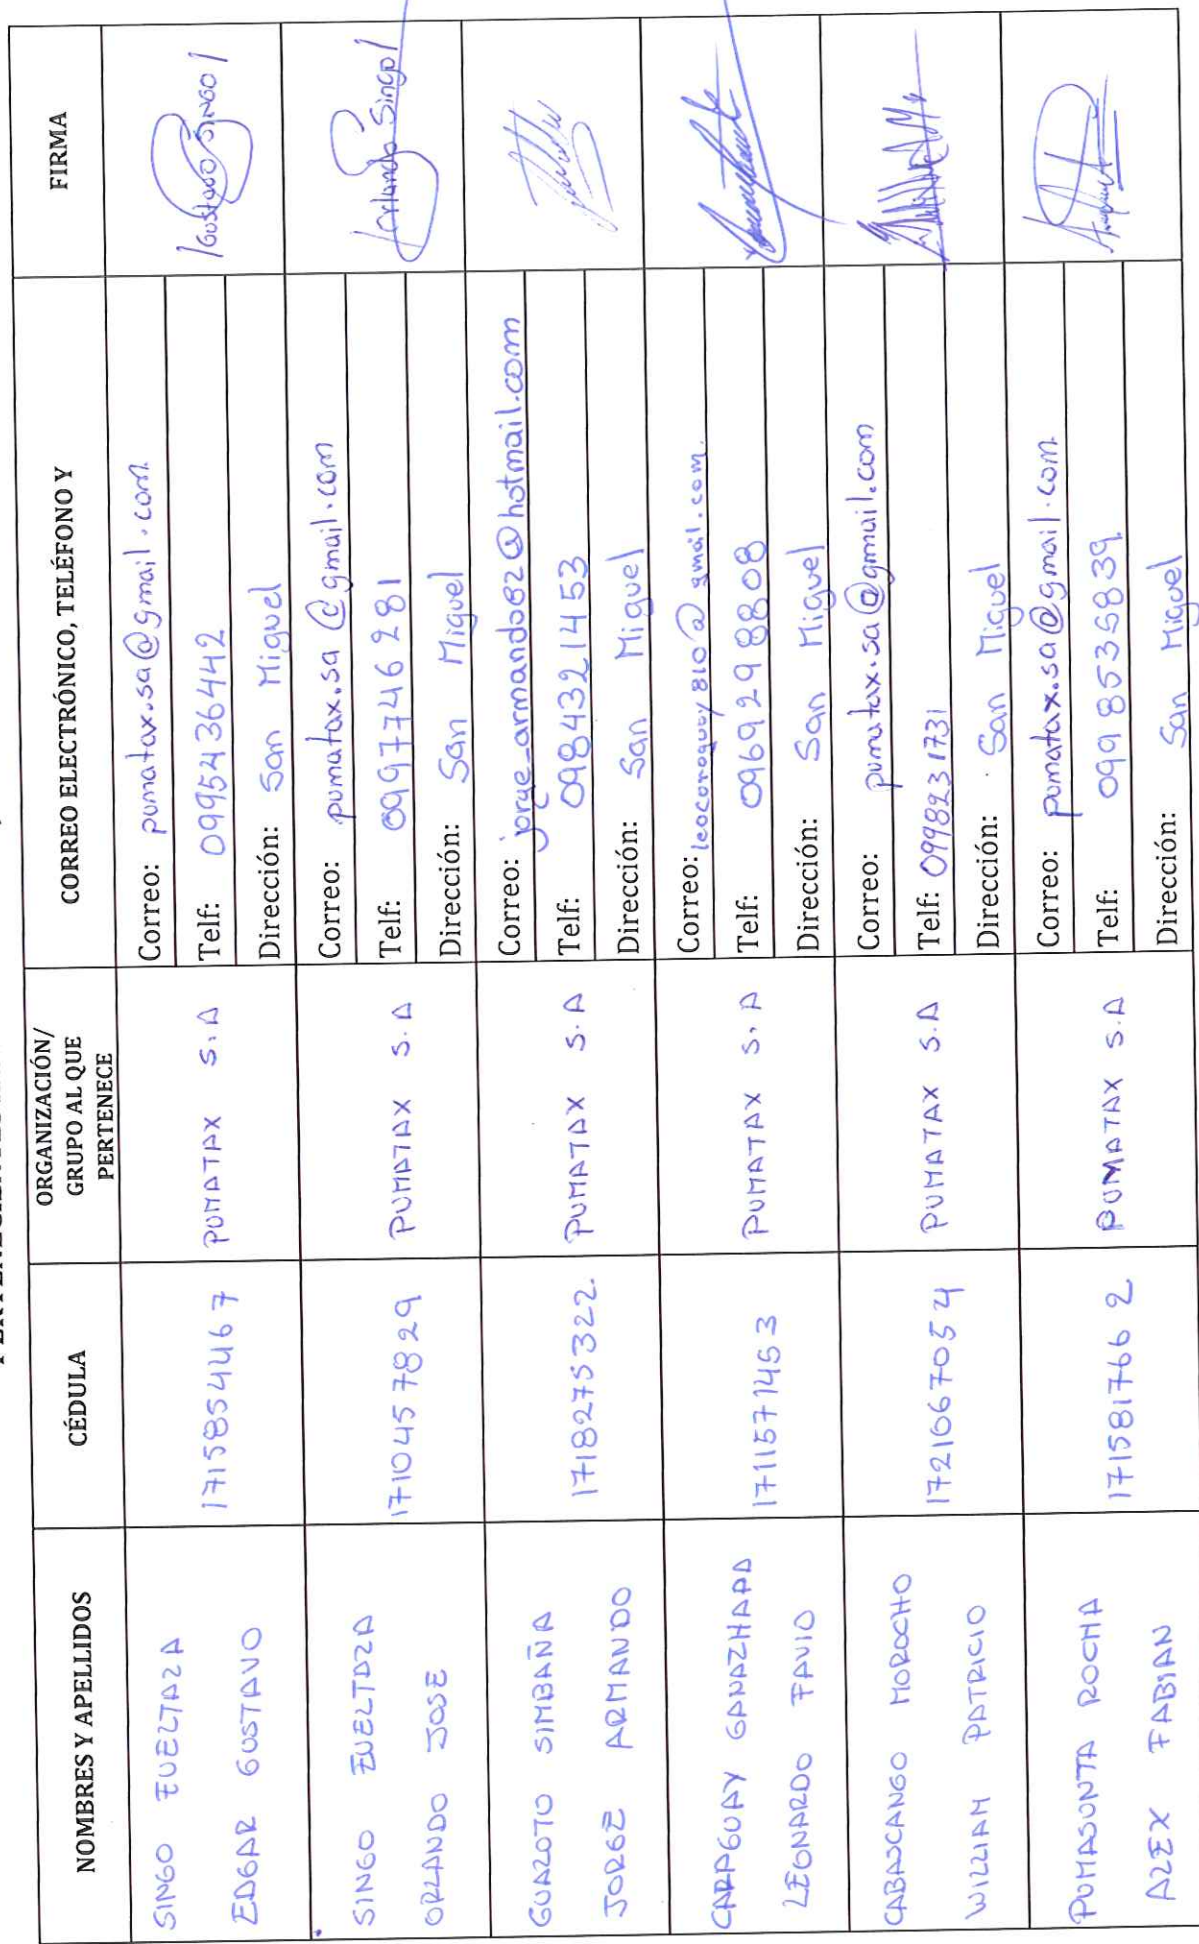 NOMBRES Y APELLIDOS
CÉDULA
ORGANIZACIÓN/
GRUPO AL QUE
PERTENECE
CORREO ELECTRÓNICO, TELÉFONO Y
FIRMA
SINGO
EDGAR GUSTAVO
1715854467
PUMATAX S.A
Correo: pumatax.sa@gmail.com
Telf: 0995436442
Dirección: San Miguel
Gustavo Singo
SINGO
ORLANDO JOSE
1710457829
PUMATAX S.A
Correo: pumatax.sa@gmail.com
Telf: 0997746281
Dirección: San Miguel
Orlando Singo
GUALOTO SIMBAÑA
JORGE ARMANDO
1718275322
PUMATAX S.A
Correo: jorge_armando82@hotmail.com
Telf: 0984321453
Dirección: San Miguel
CARAGUAY
LEONARDO FAVIO
1711571453
PUMATAX S.A
Correo:
Telf: 0969298808
Dirección: San Miguel
CABASCANGO MOROCHO
WILLIAM PATRICIO
1721667054
PUMATAX S.A
Correo: pumatax.sa@gmail.com
Telf: 0999823 1731
Dirección: San Miguel
PUMASUNTA ROCHA
ALEX FABIAN
1715817662
PUMATAX S.A
Correo: pumatax.sa@gmail.com
Telf: 0998535839
Dirección: San Miguel